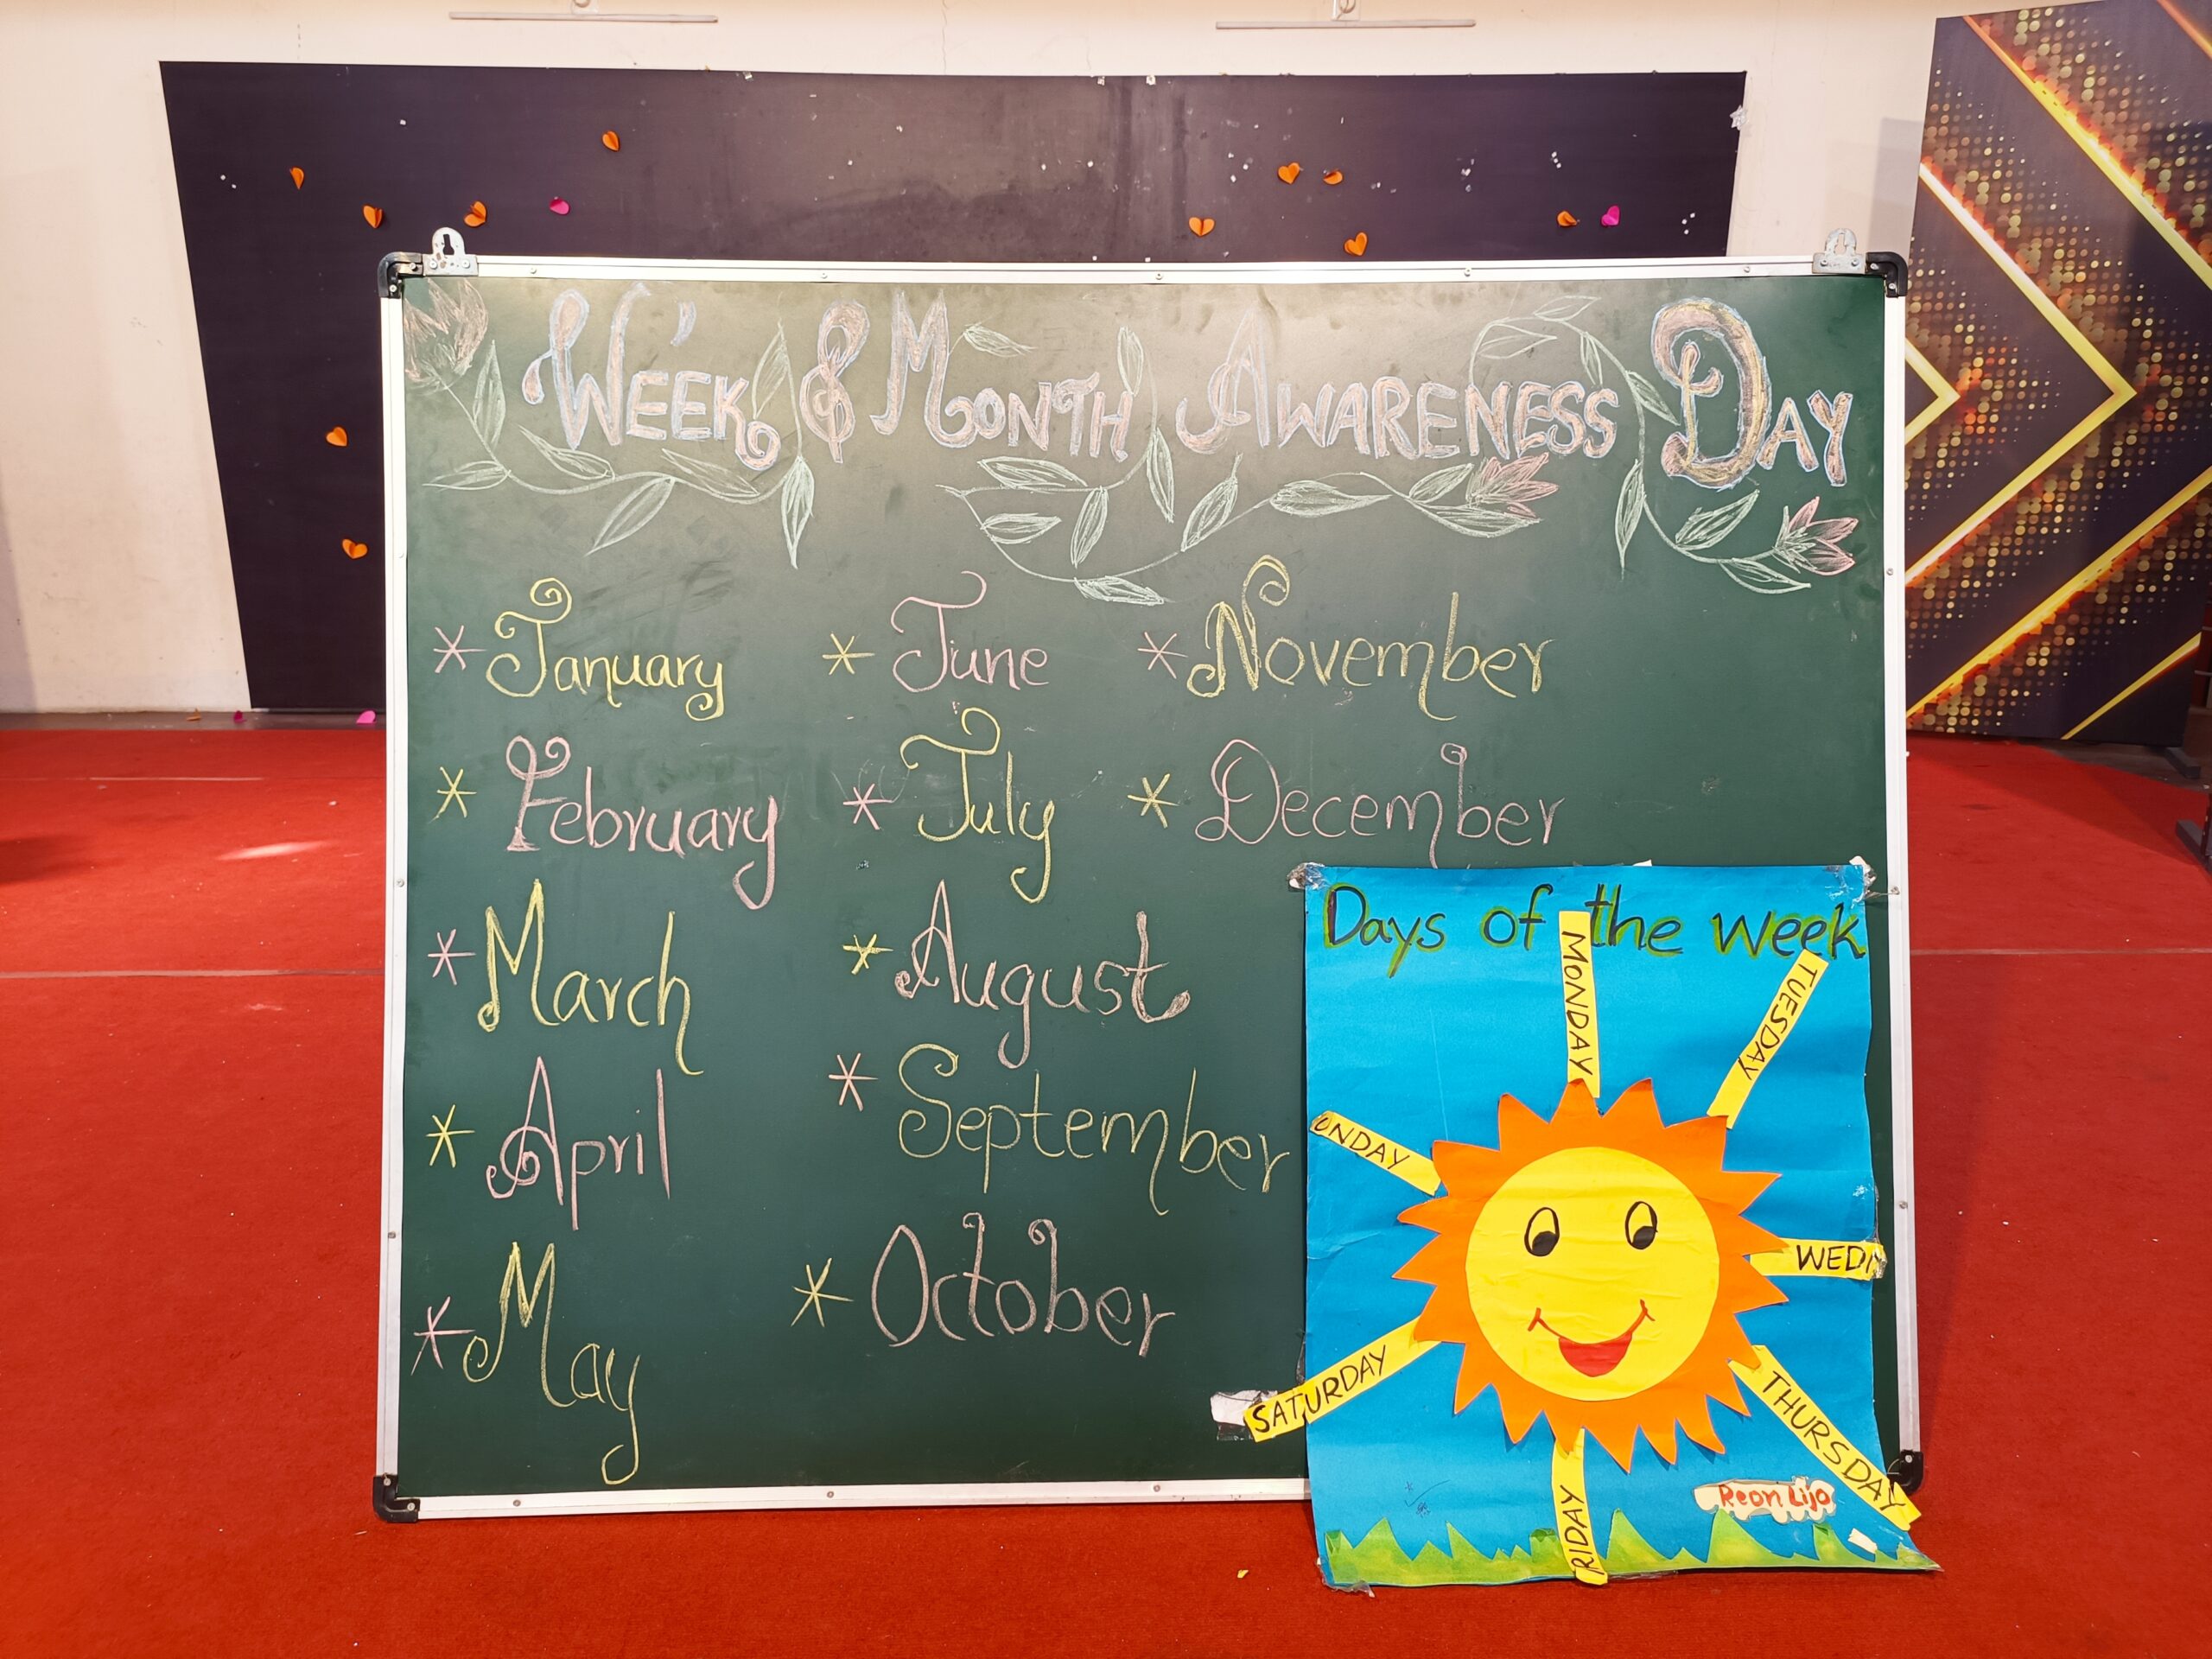 WEEK & MONTH AWARENESS DAY
January
February
March
April
May
June
July
August
September
October
November
December
Days of the week
MONDAY
TUESDAY
WEDN
THURSDAY
RIDAY
SATURDAY
UNDAY
Reon Lijo